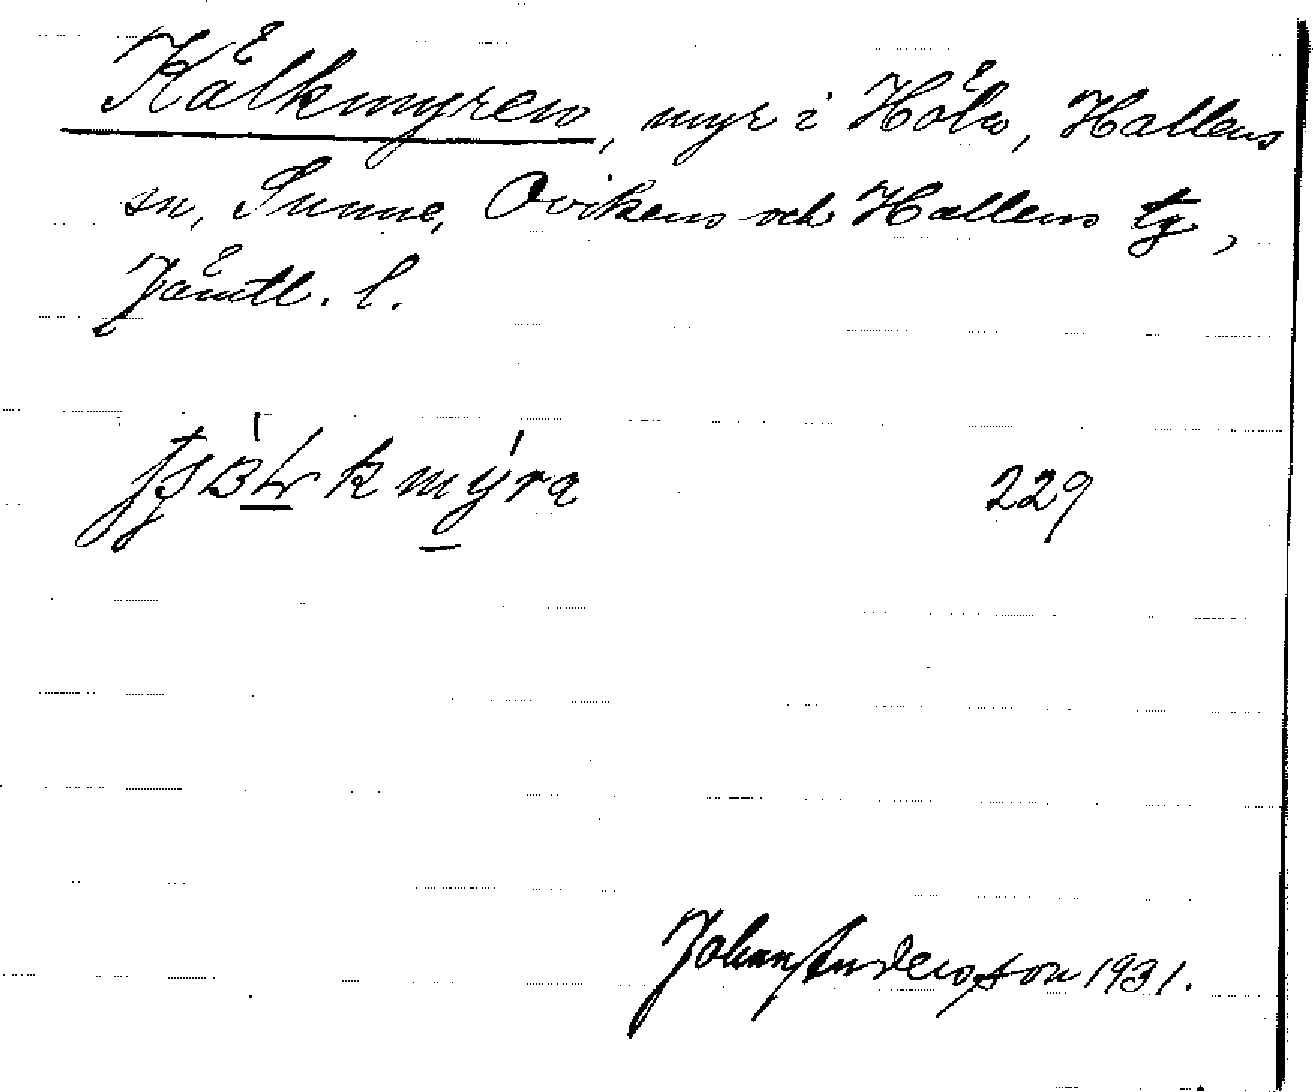 Kälkmyren, myr i Hölen, Hallens
sn, Sunne, Ovikens och Hallens tg,
Jämtl. l.
229
Johan Andersson 1931.